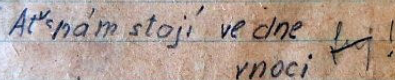 Ať nám stojí ve dne
v noci